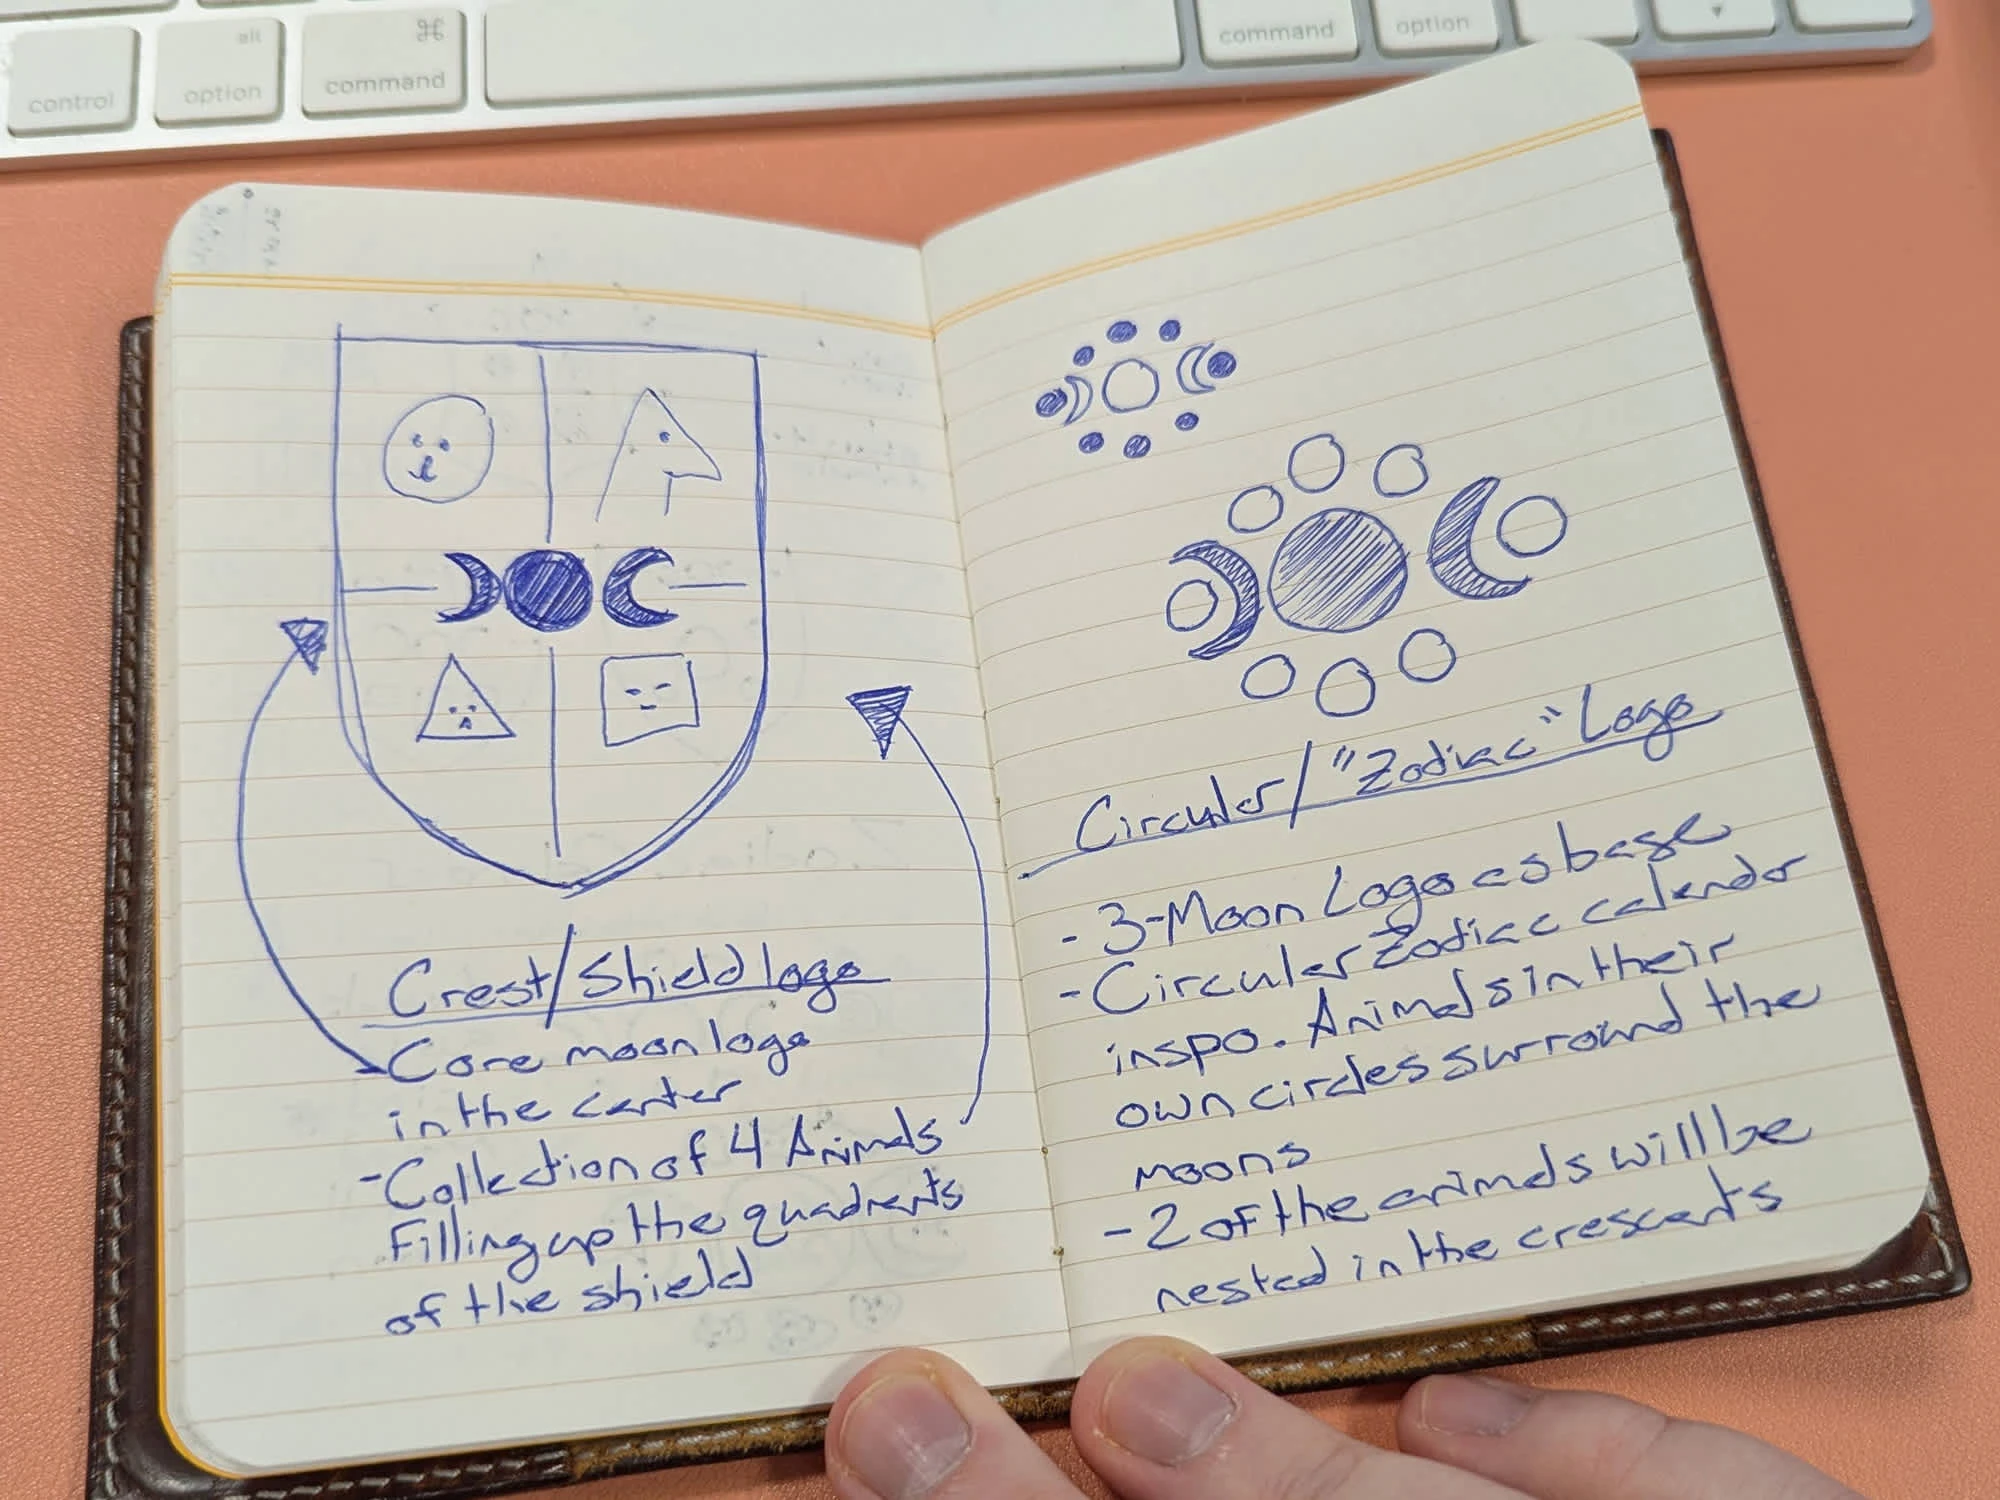 alt
⌘
control
option
command
command
option
Crest/Shield logo
- Core moon logo
in the center
- Collection of 4 Animals
Filling up the quadrants
of the shield
Circular/"Zodiac" Logo
- 3-Moon Logo as base
- Circular Zodiac calendar
inspo. Animals in their
own circles surround the
moons
- 2 of the animals will be
nested in the crescents